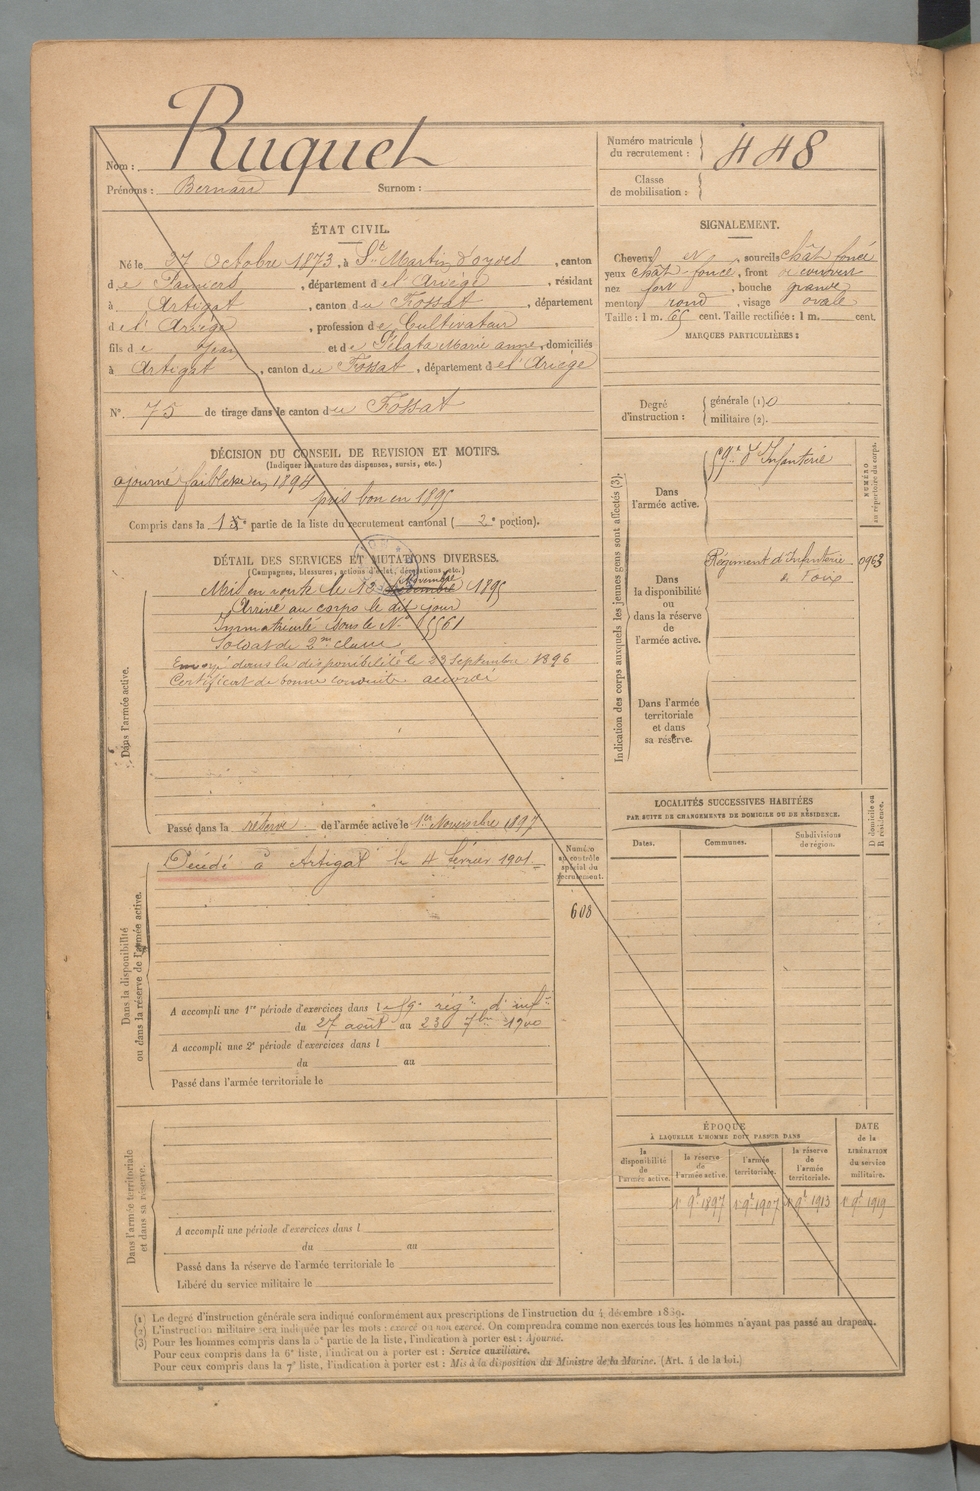 Nom : Ruquet
Prénoms : Bernard Surnom :
Numéro matricule
du recrutement : 448
Classe
de mobilisation :
ÉTAT CIVIL.
Né le 27 Octobre 1873, à St Martin d'oydes, canton
de Pamiers, département de l'Ariège, résidant
à Artigat, canton du Fossat, département
de l'Ariège, profession de Cultivateur
fils de Jean et de Gélata Marie anne, domiciliés
à Artigat, canton du Fossat, département de l'Ariège
N° 75 de tirage dans le canton du Fossat
SIGNALEMENT.
Cheveux N, sourcils chât foncé
yeux chât foncé, front couvert
nez fort, bouche grande
menton rond, visage ovale
Taille : 1 m. 65 cent. Taille rectifiée : 1 m. cent.
MARQUES PARTICULIÈRES :
Degré
d'instruction :
générale (1) 0
militaire (2).
DÉCISION DU CONSEIL DE REVISION ET MOTIFS.
(Indiquer la nature des dispenses, sursis, etc.)
ajourné faiblesse en 1894
pris bon en 1895
Compris dans la 1e partie de la liste du recrutement cantonal ( 2e portion).
DÉTAIL DES SERVICES ET MUTATIONS DIVERSES.
(Campagnes, blessures, actions d'éclat, décorations, etc.)
Dans l'armée active.
Mis en route le 13 Novembre 1895
Arrivé au corps le dit jour
Immatriculé sous le N° 5561
Soldat de 2me classe
Envoyé dans la disponibilité le 23 Septembre 1896
Certificat de bonne conduite accordé
Passé dans la réserve de l'armée active le 1er Novembre 1897
Indication des corps auxquels les jeunes gens sont affectés (3).
NUMÉRO
au répertoire du corps.
Dans
l'armée active.
59e d'Infanterie
Dans
la disponibilité
ou
dans la réserve
de
l'armée active.
Régiment d'Infanterie
de Foix
0963
Dans l'armée
territoriale
et dans
sa réserve.
LOCALITÉS SUCCESSIVES HABITÉES
PAR SUITE DE CHANGEMENTS DE DOMICILE OU DE RÉSIDENCE.
Dates.
Communes.
Subdivisions
de région.
D domicile ou
R résidence.
Dans la disponibilité
ou dans la réserve de l'armée active.
Décédé à Artigat le 4 février 1901
Numéro
au contrôle
spécial du
recrutement.
608
A accompli une 1re période d'exercices dans le 59e régt d'inft
du 27 août au 23 7bre 1900
A accompli une 2e période d'exercices dans l
du au
Passé dans l'armée territoriale le
Dans l'armée territoriale
et dans sa réserve.
A accompli une période d'exercices dans l
du au
Passé dans la réserve de l'armée territoriale le
Libéré du service militaire le
ÉPOQUE
À LAQUELLE L'HOMME DOIT PASSER DANS
la
disponibilité
de
l'armée active.
la réserve
de
l'armée active.
l'armée
territoriale.
la réserve
de
l'armée
territoriale.
DATE
de la
LIBÉRATION
du service
militaire.
1r 9e 1897
1r 9e 1907
1r 9e 1913
1r 9e 1919
(1) Le degré d'instruction générale sera indiqué conformément aux prescriptions de l'instruction du 4 décembre 1889.
(2) L'instruction militaire sera indiquée par les mots : exercé ou non exercé. On comprendra comme non exercés tous les hommes n'ayant pas passé au drapeau.
(3) Pour les hommes compris dans la 5e partie de la liste, l'indication à porter est : Ajourné.
Pour ceux compris dans la 6e liste, l'indication à porter est : Service auxiliaire.
Pour ceux compris dans la 7e liste, l'indication à porter est : Mis à la disposition du Ministre de la Marine. (Art. 4 de la loi.)